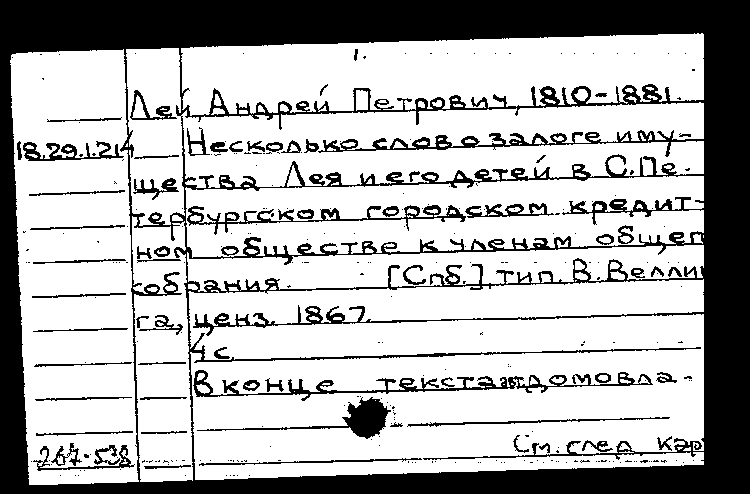 1.
Лей, Андрей Петрович, 1810-1881.
18.29.1.214 Несколько слов о залоге иму-
щества Лея и его детей в С.Пе-
тербургском городском кредит-
ном обществе к членам общег
собрания. [Спб.], тип. В. Веллин
га, ценз. 1867.
4 с.
В конце текста авт. домовла-
См. след. кар
267-538